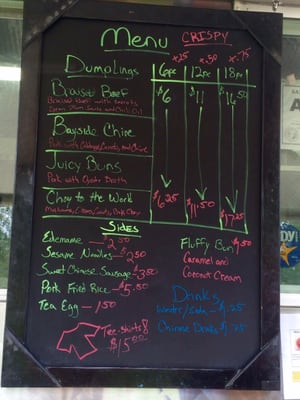 Menu CRISPY
+.25 +.50 +.75
Dumplings 6pc 12pc 18pc
Braised Beef $6 $11 $16.50
Braised Beef with carrots,
Bayside Chive
Pork with Cabbage, Carrots, and Chive
Juicy Buns
Pork with Oyster Broth
Choy to the Work $6.25 $11.50 $17.25
Sides
Edemame — 2.50
Sesame Noodles — $2.50
Sweet Chinese Sausage — $3.00
Pork Fried Rice — $5.50
Tea Egg — 1.50
Fluffy Bun $4.50
Caramel and
Coconut Cream
Drinks
Water/Soda — $1.25
Chinese Drinks $1.75
Tee-Shirts
$15.00